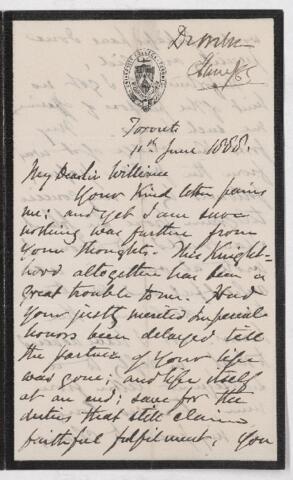 Dr Wilson
Toronto
11th June 1888.
My Dear Sir William
Your kind letter pains
me; and yet I am sure
nothing was further from
your thoughts. This Knight-
hood altogether has been a
great trouble to me. Had
your justly merited Imperial
honors been delayed till
the partner of your life
was gone; and life itself
at an end; save for the
duties that still claim
faithful fulfilment, you